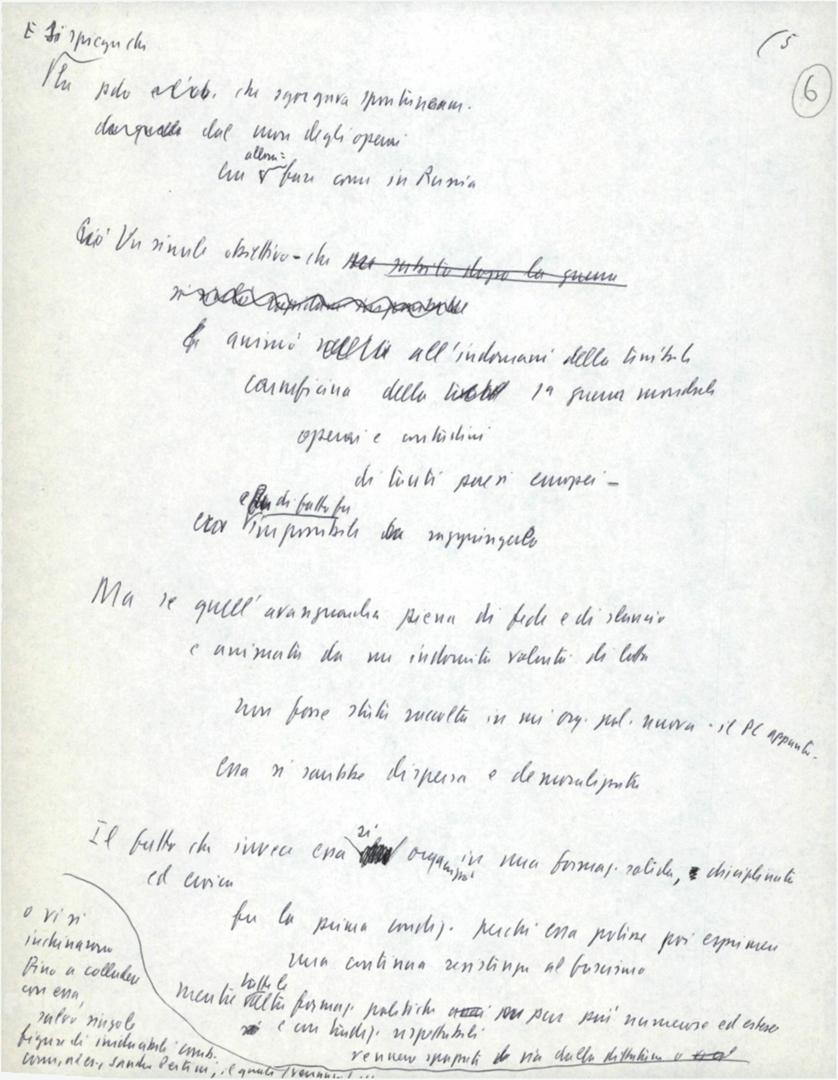 E si spieghi
(5
6
che sgorgava spontaneam.
dal degli operai
allora:
fare come in Russia
Ciò Un simile obiettivo - che subito dopo la guerra
animò all'indomani della terribile
carneficina della 1ª guerra mondiale
operai e contadini
di tanti paesi europei -
e di fatto fu
era impossibile da raggiungere
Ma se quell'avanguardia piena di fede e di slancio
e animata da un'indomita volontà di lotta
non fosse stata raccolta in un'org. pol. nuova - il PC appunto -
essa si sarebbe dispersa e demoralizzata
Il fatto che invece essa si organizzò in una formaz. solida, disciplinata
ed eroica
fu la prima condiz. perché essa potesse poi esprimere
una continua resistenza al fascismo
mentre tutte le altre formaz. politiche pur più numerose ed estese
e con tradiz. rispettabili
vennero spazzate via dalla dittatura o
o vi si
inchinarono
fino a colludere
con essa,
salvo singole
figure di irriducibili comb.
come, ad es., Sandro Pertini, il quale